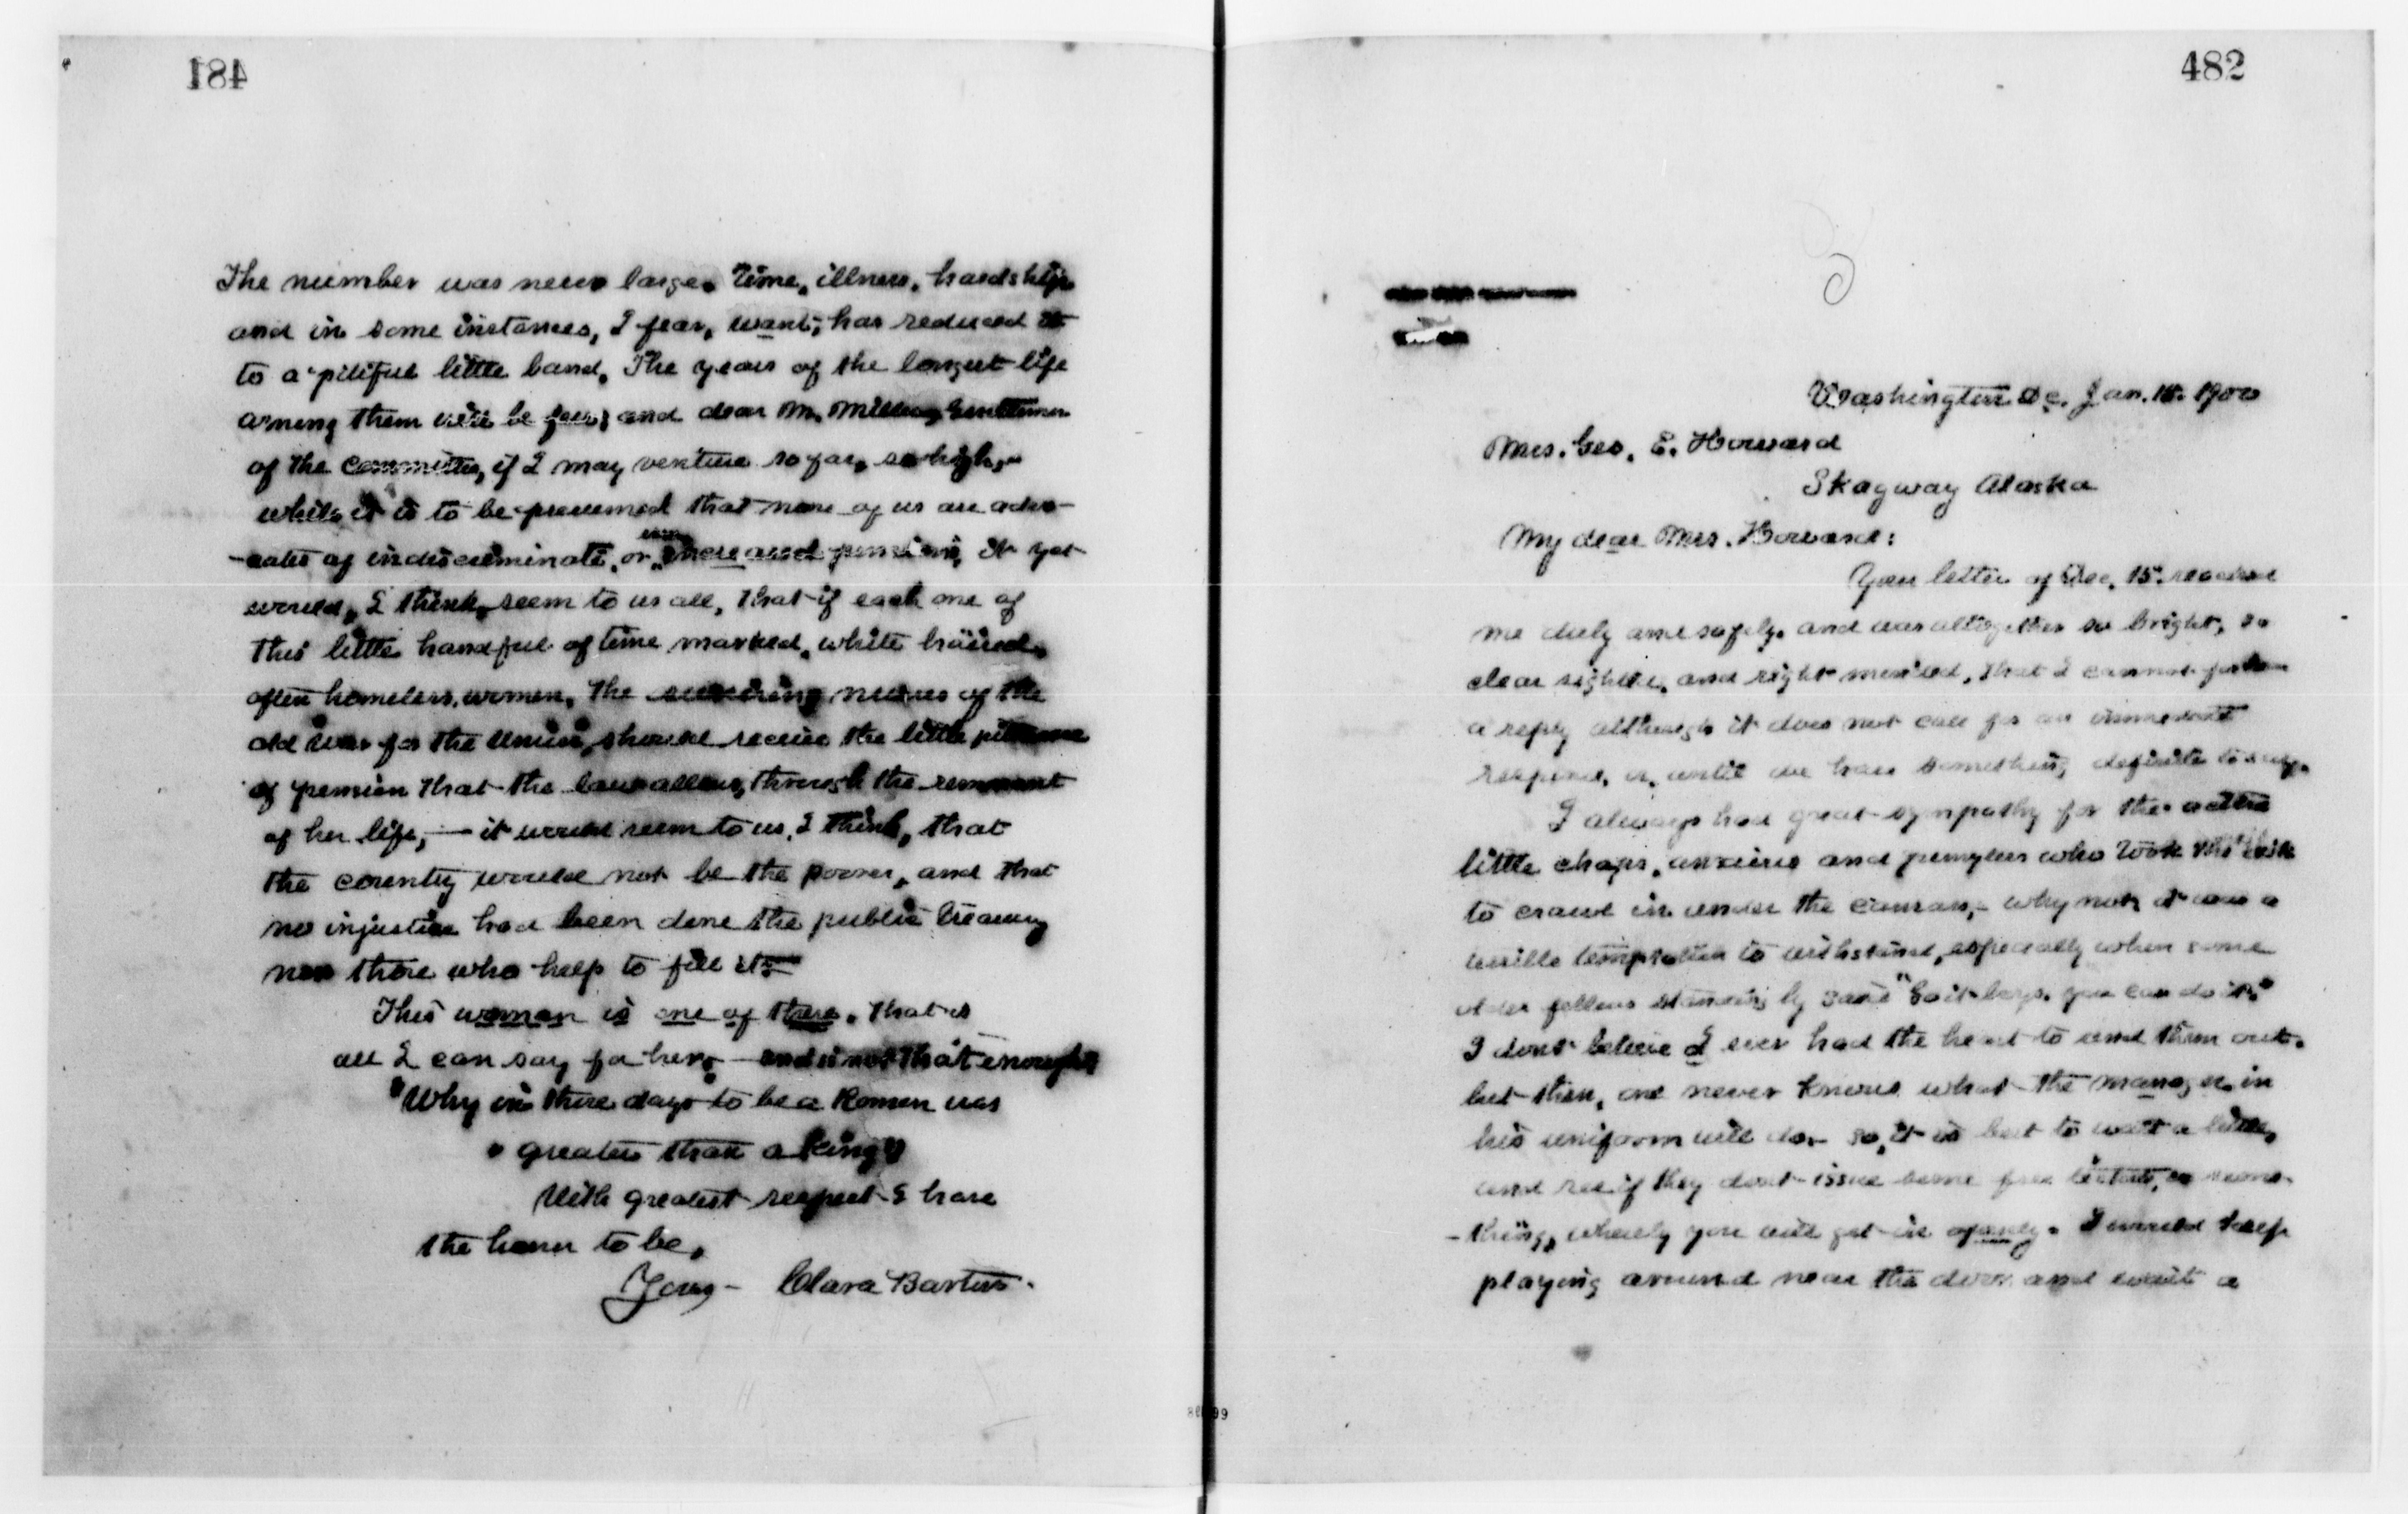 481
The number was never large. Time, illness, hardship
and in some instances, I fear, want, has reduced it
to a pitiful little band. The years of the longest life
among them will be few, and dear Mr. Gentlemen
of the Committee, if I may venture so far, so high,-
while it is to be presumed that none of us are advo-
-cates of indiscriminate, or even increased pensions, it yet
would, I think, seem to us all, that if each one of
this little handful of time marked, white haired,
often homeless, women, the surviving nurses of the
old war for the Union, should receive the little pittance
of pension that the law allows, through the remnant
of her life, — it would seem to us, I think, that
the country would not be the poorer, and that
no injustice had been done the public treasury
nor those who help to fill it.
This woman is one of these. That is
all I can say for her, - and is not that enough?
"Why in those days to be a Roman was
" greater than a King"
With greatest respect I have
the honor to be,
Yours - Clara Barton.
482
Washington D.C. Jan. 1900
Mrs. Geo. E. Howard
Skagway Alaska
My dear Mrs. Howard:
Your letter of Dec. 15. reached
me duly and safely. and was altogether so bright, so
clear sighted, and right minded, that I cannot
a reply although it does not call for an immediate
response, or, until we have something definite to say.
I always had great sympathy for the active
little chaps, anxious and penniless who took the risk
to crawl in under the canvas,- why not, it was a
terrible temptation to withstand, especially when some
older fellows standing by said "Go it boys. you can do it."
I dont believe I ever had the heart to send them out.
but then, one never knows what the manager in
his uniform will do,- so, it is best to wait a little,
and see if they dont issue some free tickets, or some-
-thing, whereby you will get in openly. I would keep
playing around near the door and wait a